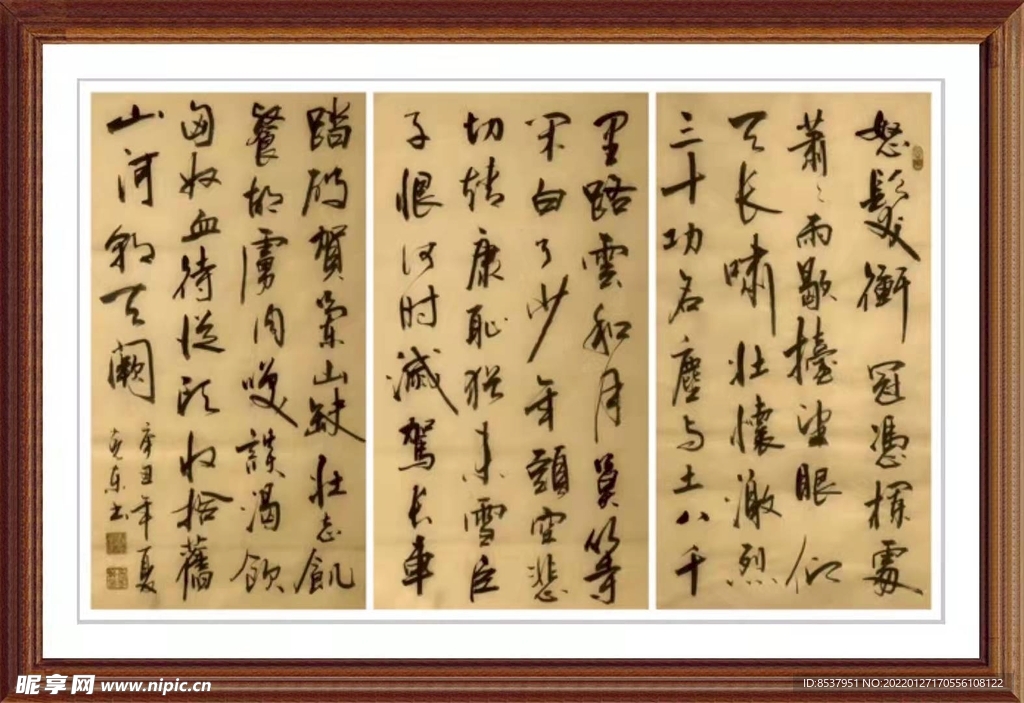 怒髮衝冠憑欄處
蕭々雨歇擡望眼仰
天长嘯壮懷激烈
三十功名塵与土八千
里路雲和月莫等
闲白了少年頭空悲
切靖康耻猶未雪臣
子恨何时滅駕长車
踏破賀蘭山缺壮志飢
餐胡虜肉笑談渴飲
匈奴血待從頭收拾舊
山河朝天闕
辛丑年夏
昵享网 www.nipic.cn
ID:8537951 NO:20220127170556108122